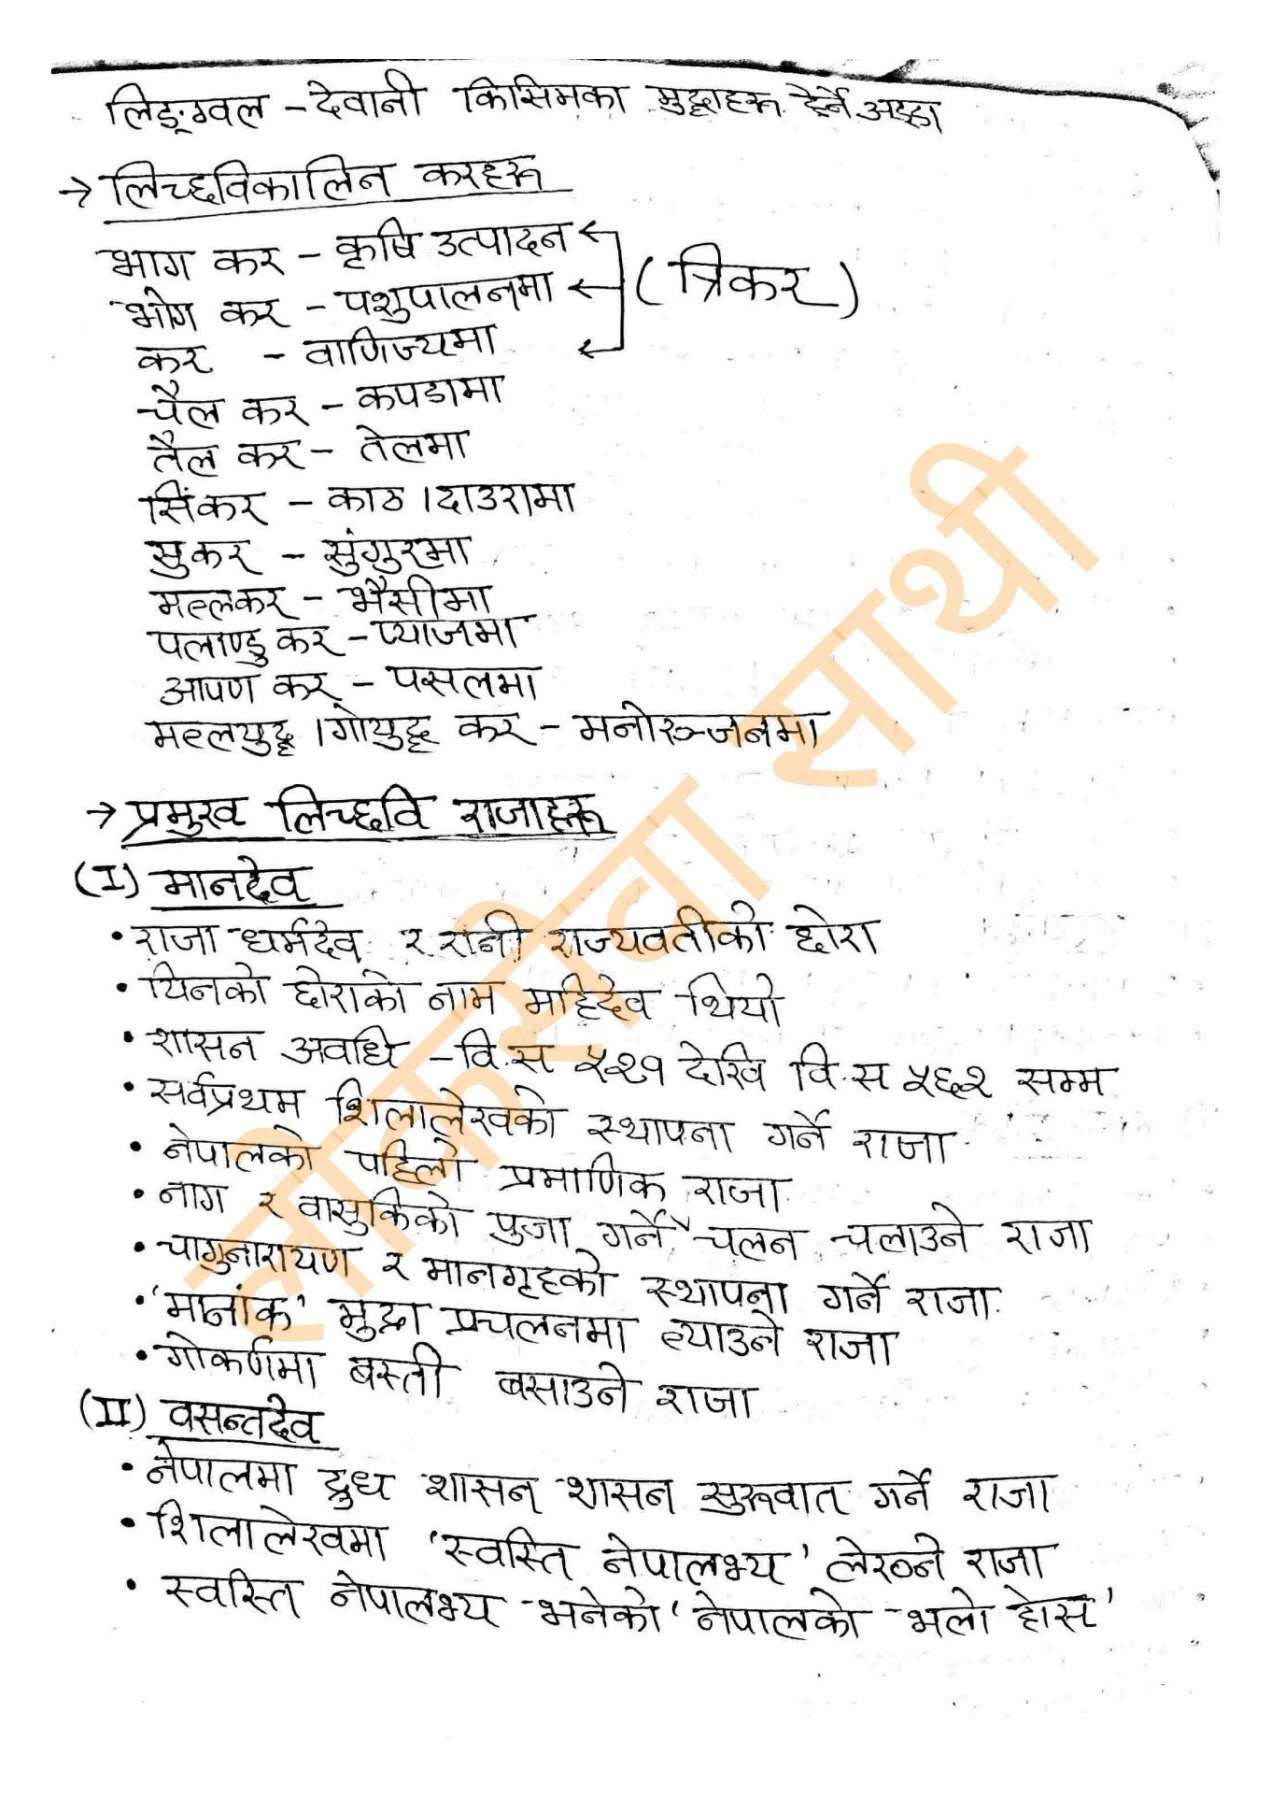 लिङ्ग्वल - देवानी किसिमका मुद्दाहरू हेर्ने अड्डा
→ लिच्छविकालिन करहरू
भाग कर - कृषि उत्पादन
भोग कर - पशुपालनमा (त्रिकर)
कर - वाणिज्यमा
चैल कर - कपडामा
तैल कर - तेलमा
सिंकर - काठ।दाउरामा
सुकर - सुंगुरमा
मल्लकर - भैसीमा
पलाण्डु कर - प्याजमा
आपण कर - पसलमा
मल्लयुद्ध।गोयुद्ध कर - मनोरञ्जनमा
→ प्रमुख लिच्छवि राजाहरू
(I) मानदेव
• राजा धर्मदेव र रानी राज्यवतीको छोरा
• यिनको छोराको नाम महिदेव थियो
• शासन अवधि - वि.स ५२१ देखि वि.स ५६२ सम्म
• सर्वप्रथम शिलालेखको स्थापना गर्ने राजा
• नेपालको पहिलो प्रमाणिक राजा
• नाग र वासुकिको पुजा गर्ने चलन चलाउने राजा
• चागुनारायण र मानगृहको स्थापना गर्ने राजा
• 'मानांक' मुद्रा प्रचलनमा ल्याउने राजा
• गोकर्णमा बस्ती बसाउने राजा
(II) वसन्तदेव
• नेपालमा द्वुध शासन शासन सुरूवात गर्ने राजा
• शिलालेखमा 'स्वस्ति नेपालभ्य' लेख्ने राजा
• स्वस्ति नेपालभ्य भनेको 'नेपालको भलो होस'
लोकसेवा साथी